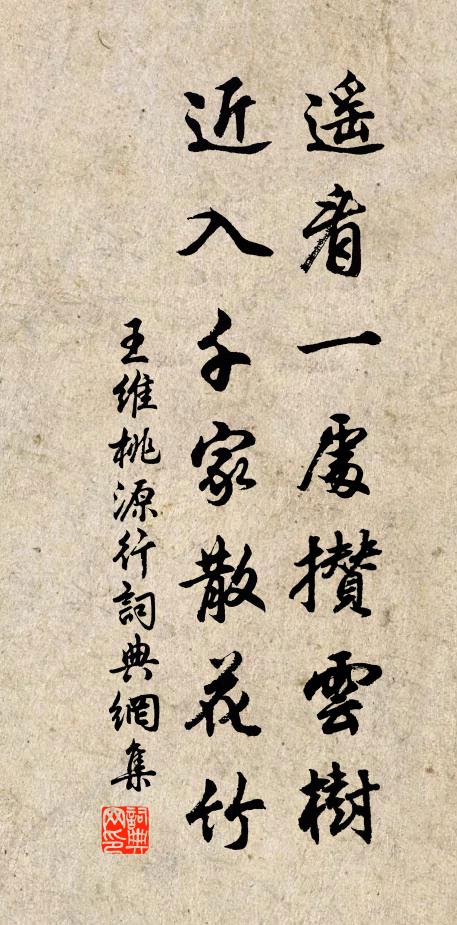 遥看一處攢雲樹
近入千家散花竹
王維桃源行詞典網集
詞典网印